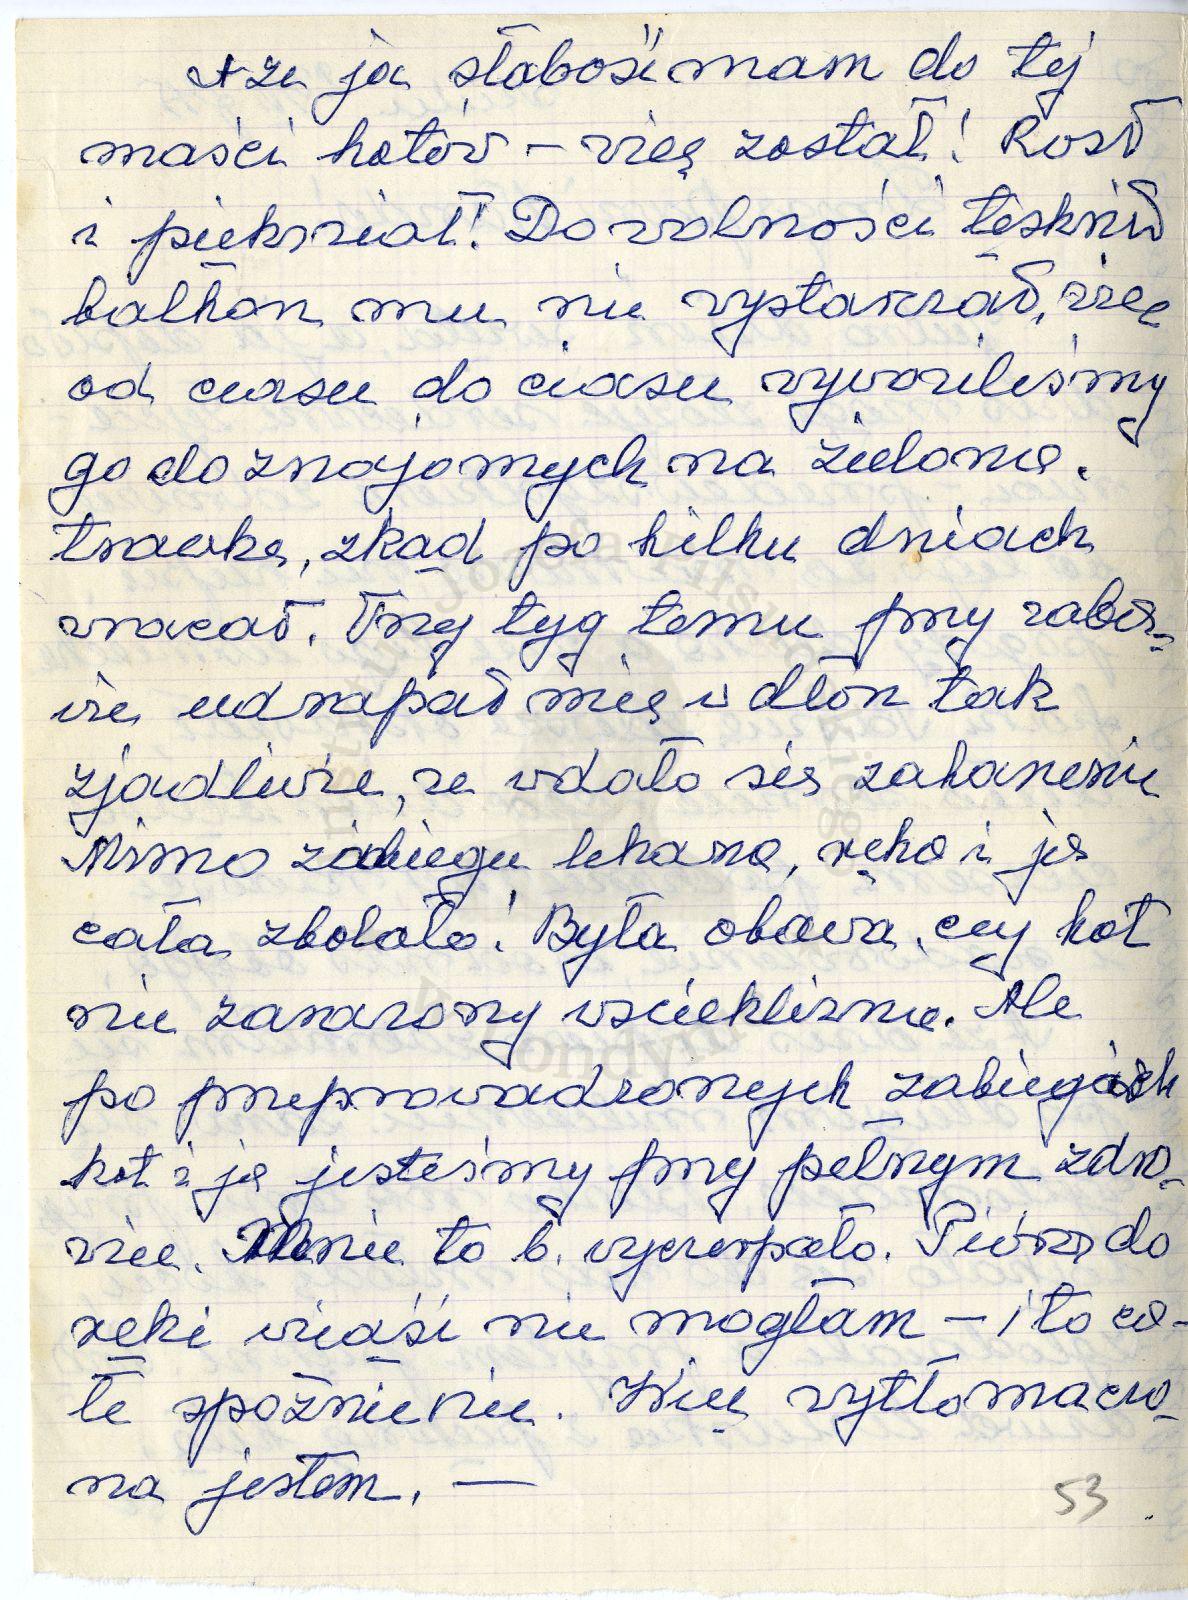 A że ja słabość mam do tej
maści kotów – więc został! Rósł
i piękniał! Do wolności tęsknił
balkon mu nie wystarczał, więc
od czasu do czasu wywoziliśmy
go do znajomych na zieloną
trawkę, zkąd po kilku dniach
wracał. Trzy tyg temu przy zaba-
wie udrapał mię w dłoń tak
zjadliwie, że wdało się zakażenie
Mimo zabiegu lekarza, ręka i ja
cała zbolała! Była obawa, czy kot
nie zarażony wścieklizną. Ale
po przeprowadzonych zabiegach
kot i ja jesteśmy przy pełnym zdro-
wiu. Mnie to b. wyczerpało. Pióra do
ręki wziąść nie mogłam – i to ca-
łe spóźnienie. Więc wytłomaczo-
na jestem. —
53
Instytut Józefa Piłsudskiego
w Londynie